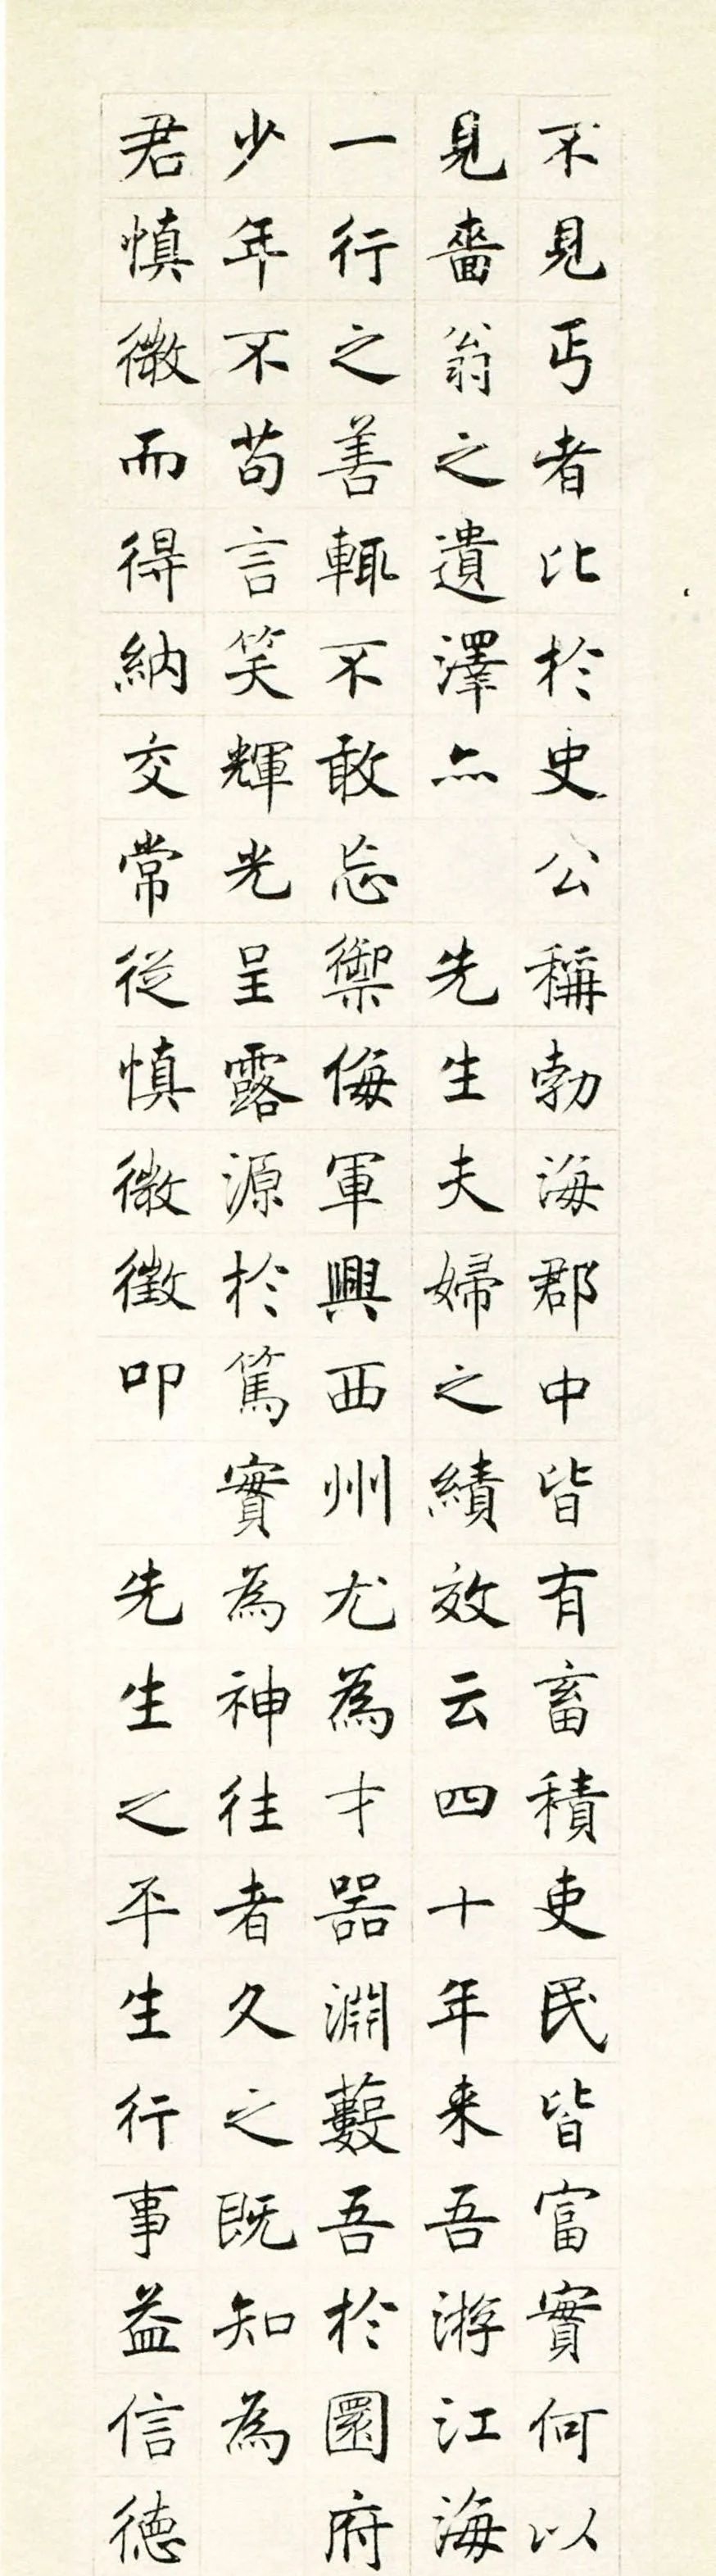 不見丐者比於史公稱勃海郡中皆有畜積吏民皆富實何以
見嗇翁之遺澤亦　先生夫婦之績效云四十年来吾游江海
一行之善輒不敢忘禦侮軍興西州尤為才器淵藪吾於圜府
少年不苟言笑輝光呈露源於篤實為神往者久之既知為
君慎微而得納交常從慎微徵叩　先生之平生行事益信德